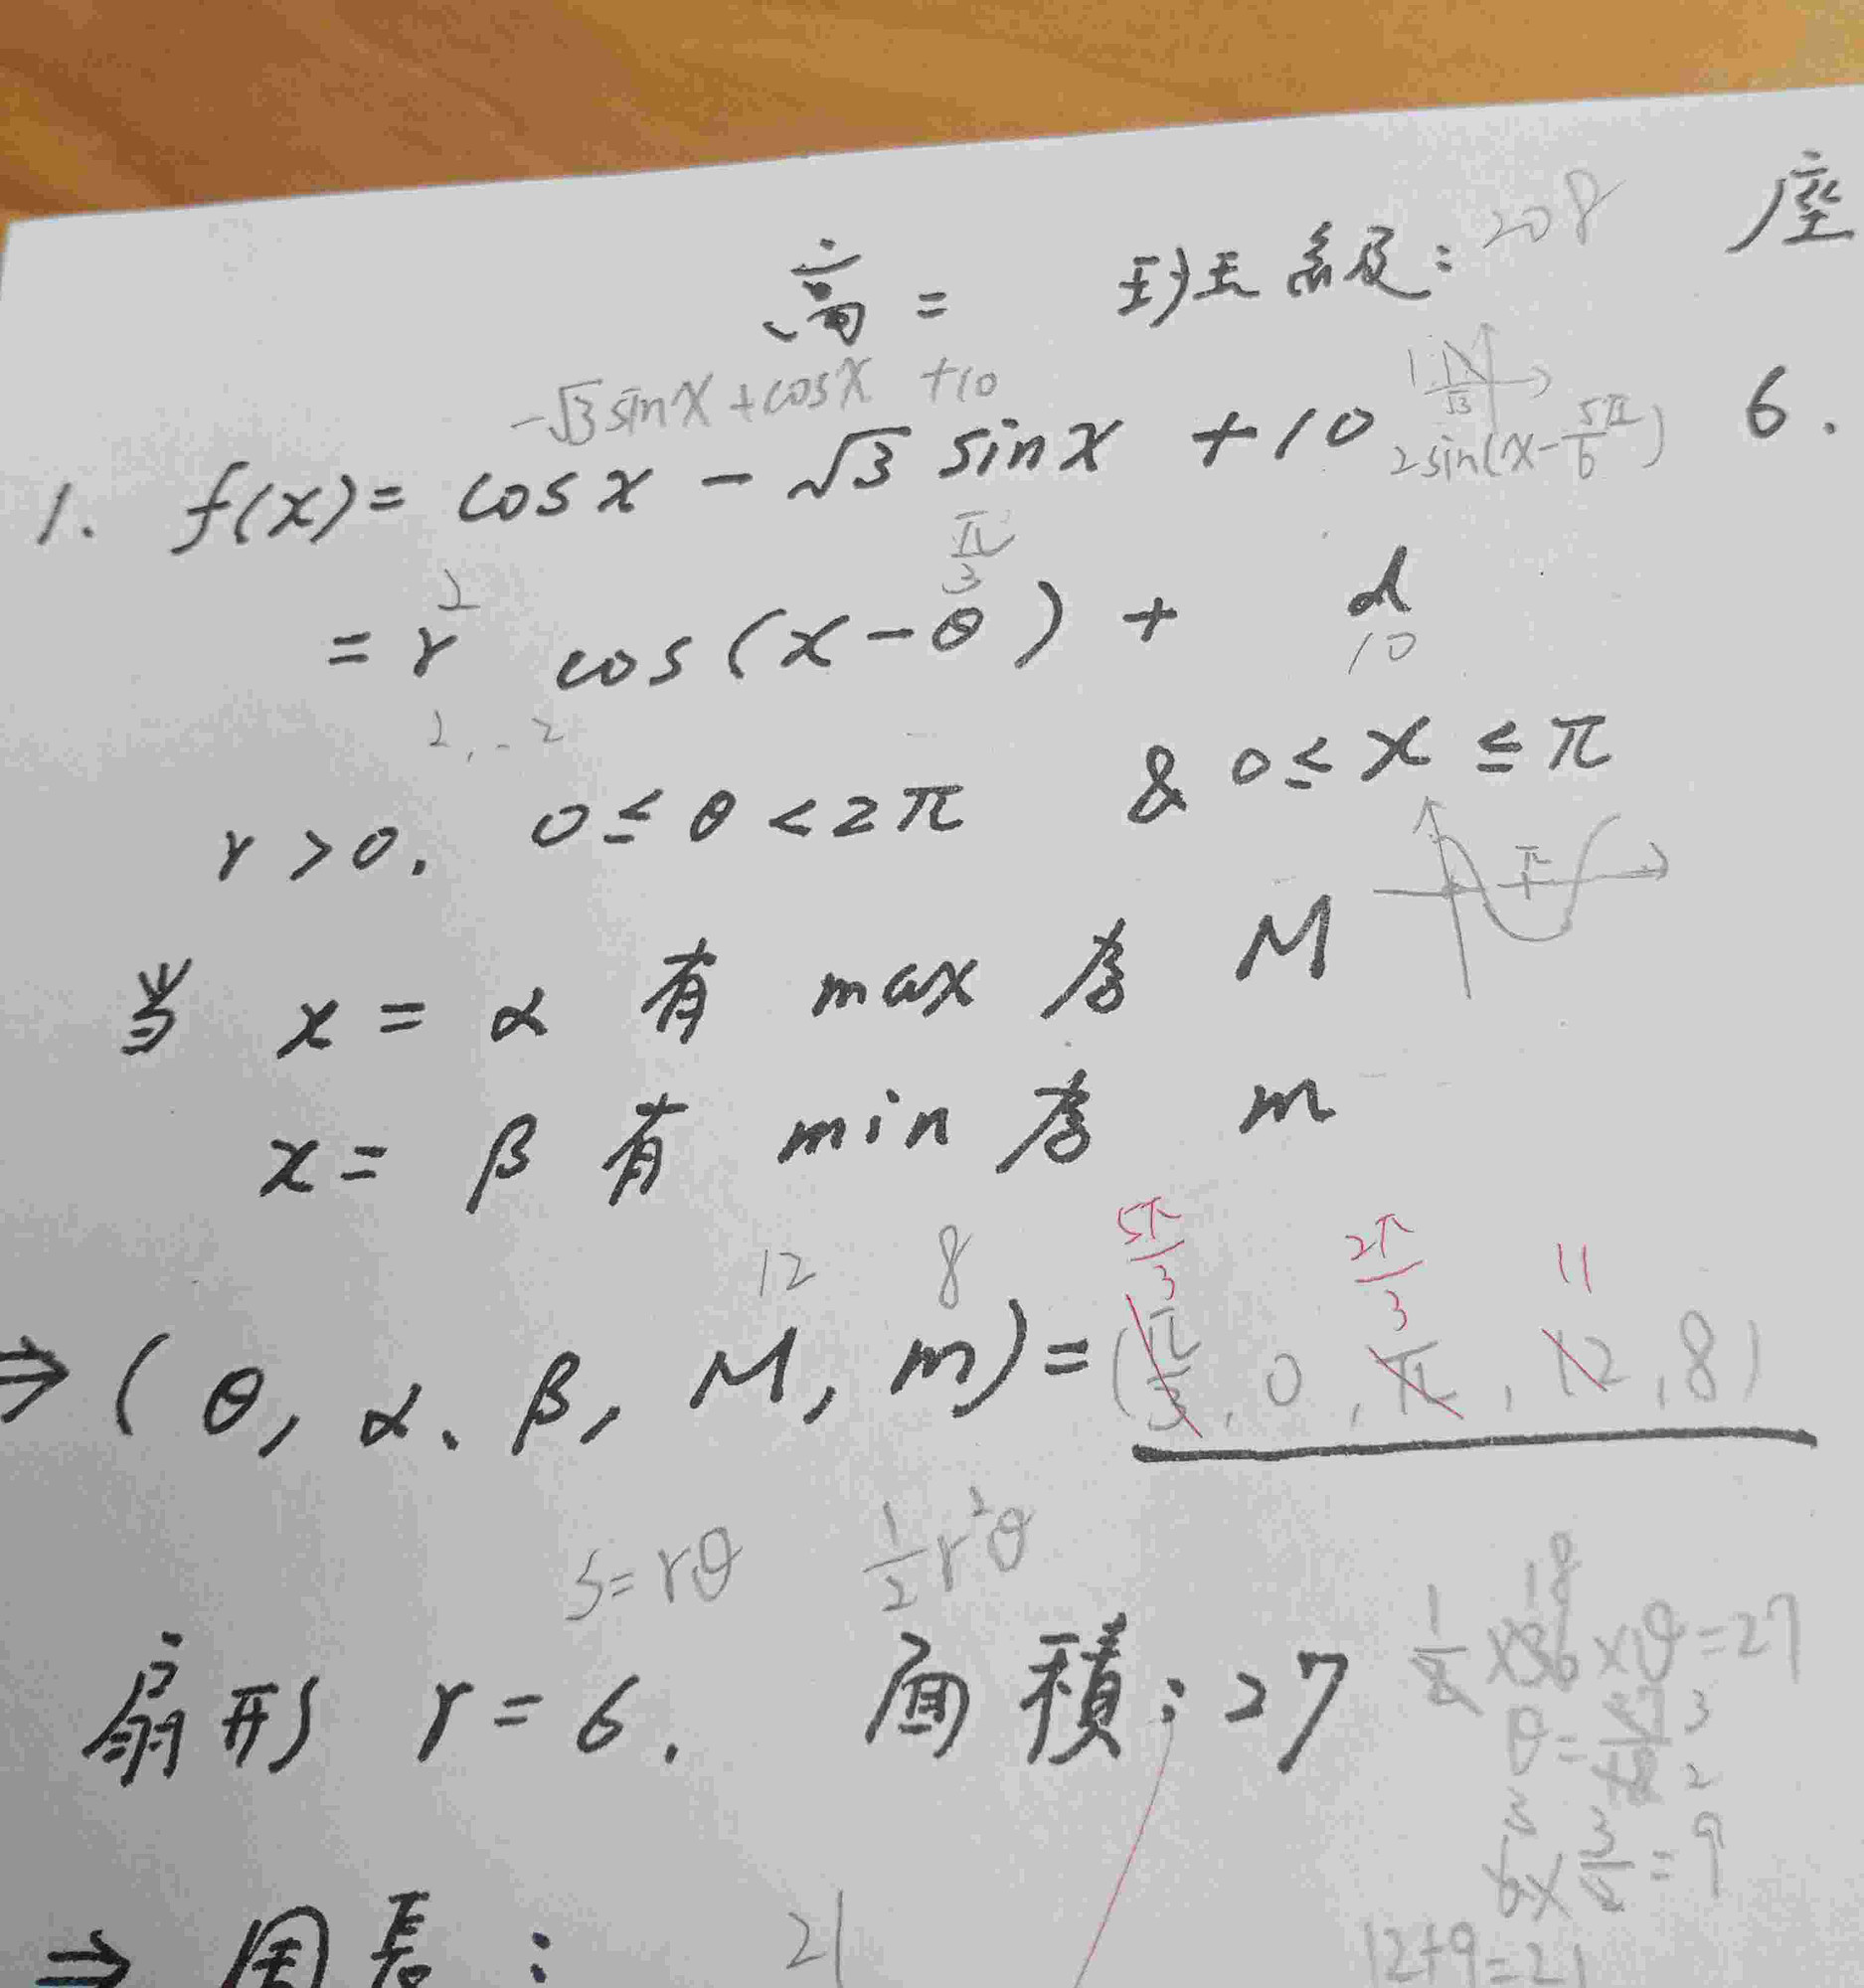 高二 班級：208 座
-√3 sinx + cosx +10
1. f(x) = cos x - √3 sin x + 10 2sin(x-5π/6) 6.
2 π/3
= r cos(x-θ) + d
10
2, -2
r > 0, 0 ≤ θ < 2π & 0 ≤ x ≤ π
π
当 x = α 有 max 為 M
x = β 有 min 為 m
12 8 5π/3 2π/3 11
⇒ (θ, α, β, M, m) = (π/3, 0, π, 12, 8)
S=rθ 1/2 r²θ
18
扇形 r = 6, 面積：27 1/2 ×36×θ=27
θ=27/18 3/2
3
6×3/2=9
⇒ 周長： 21 12+9=21